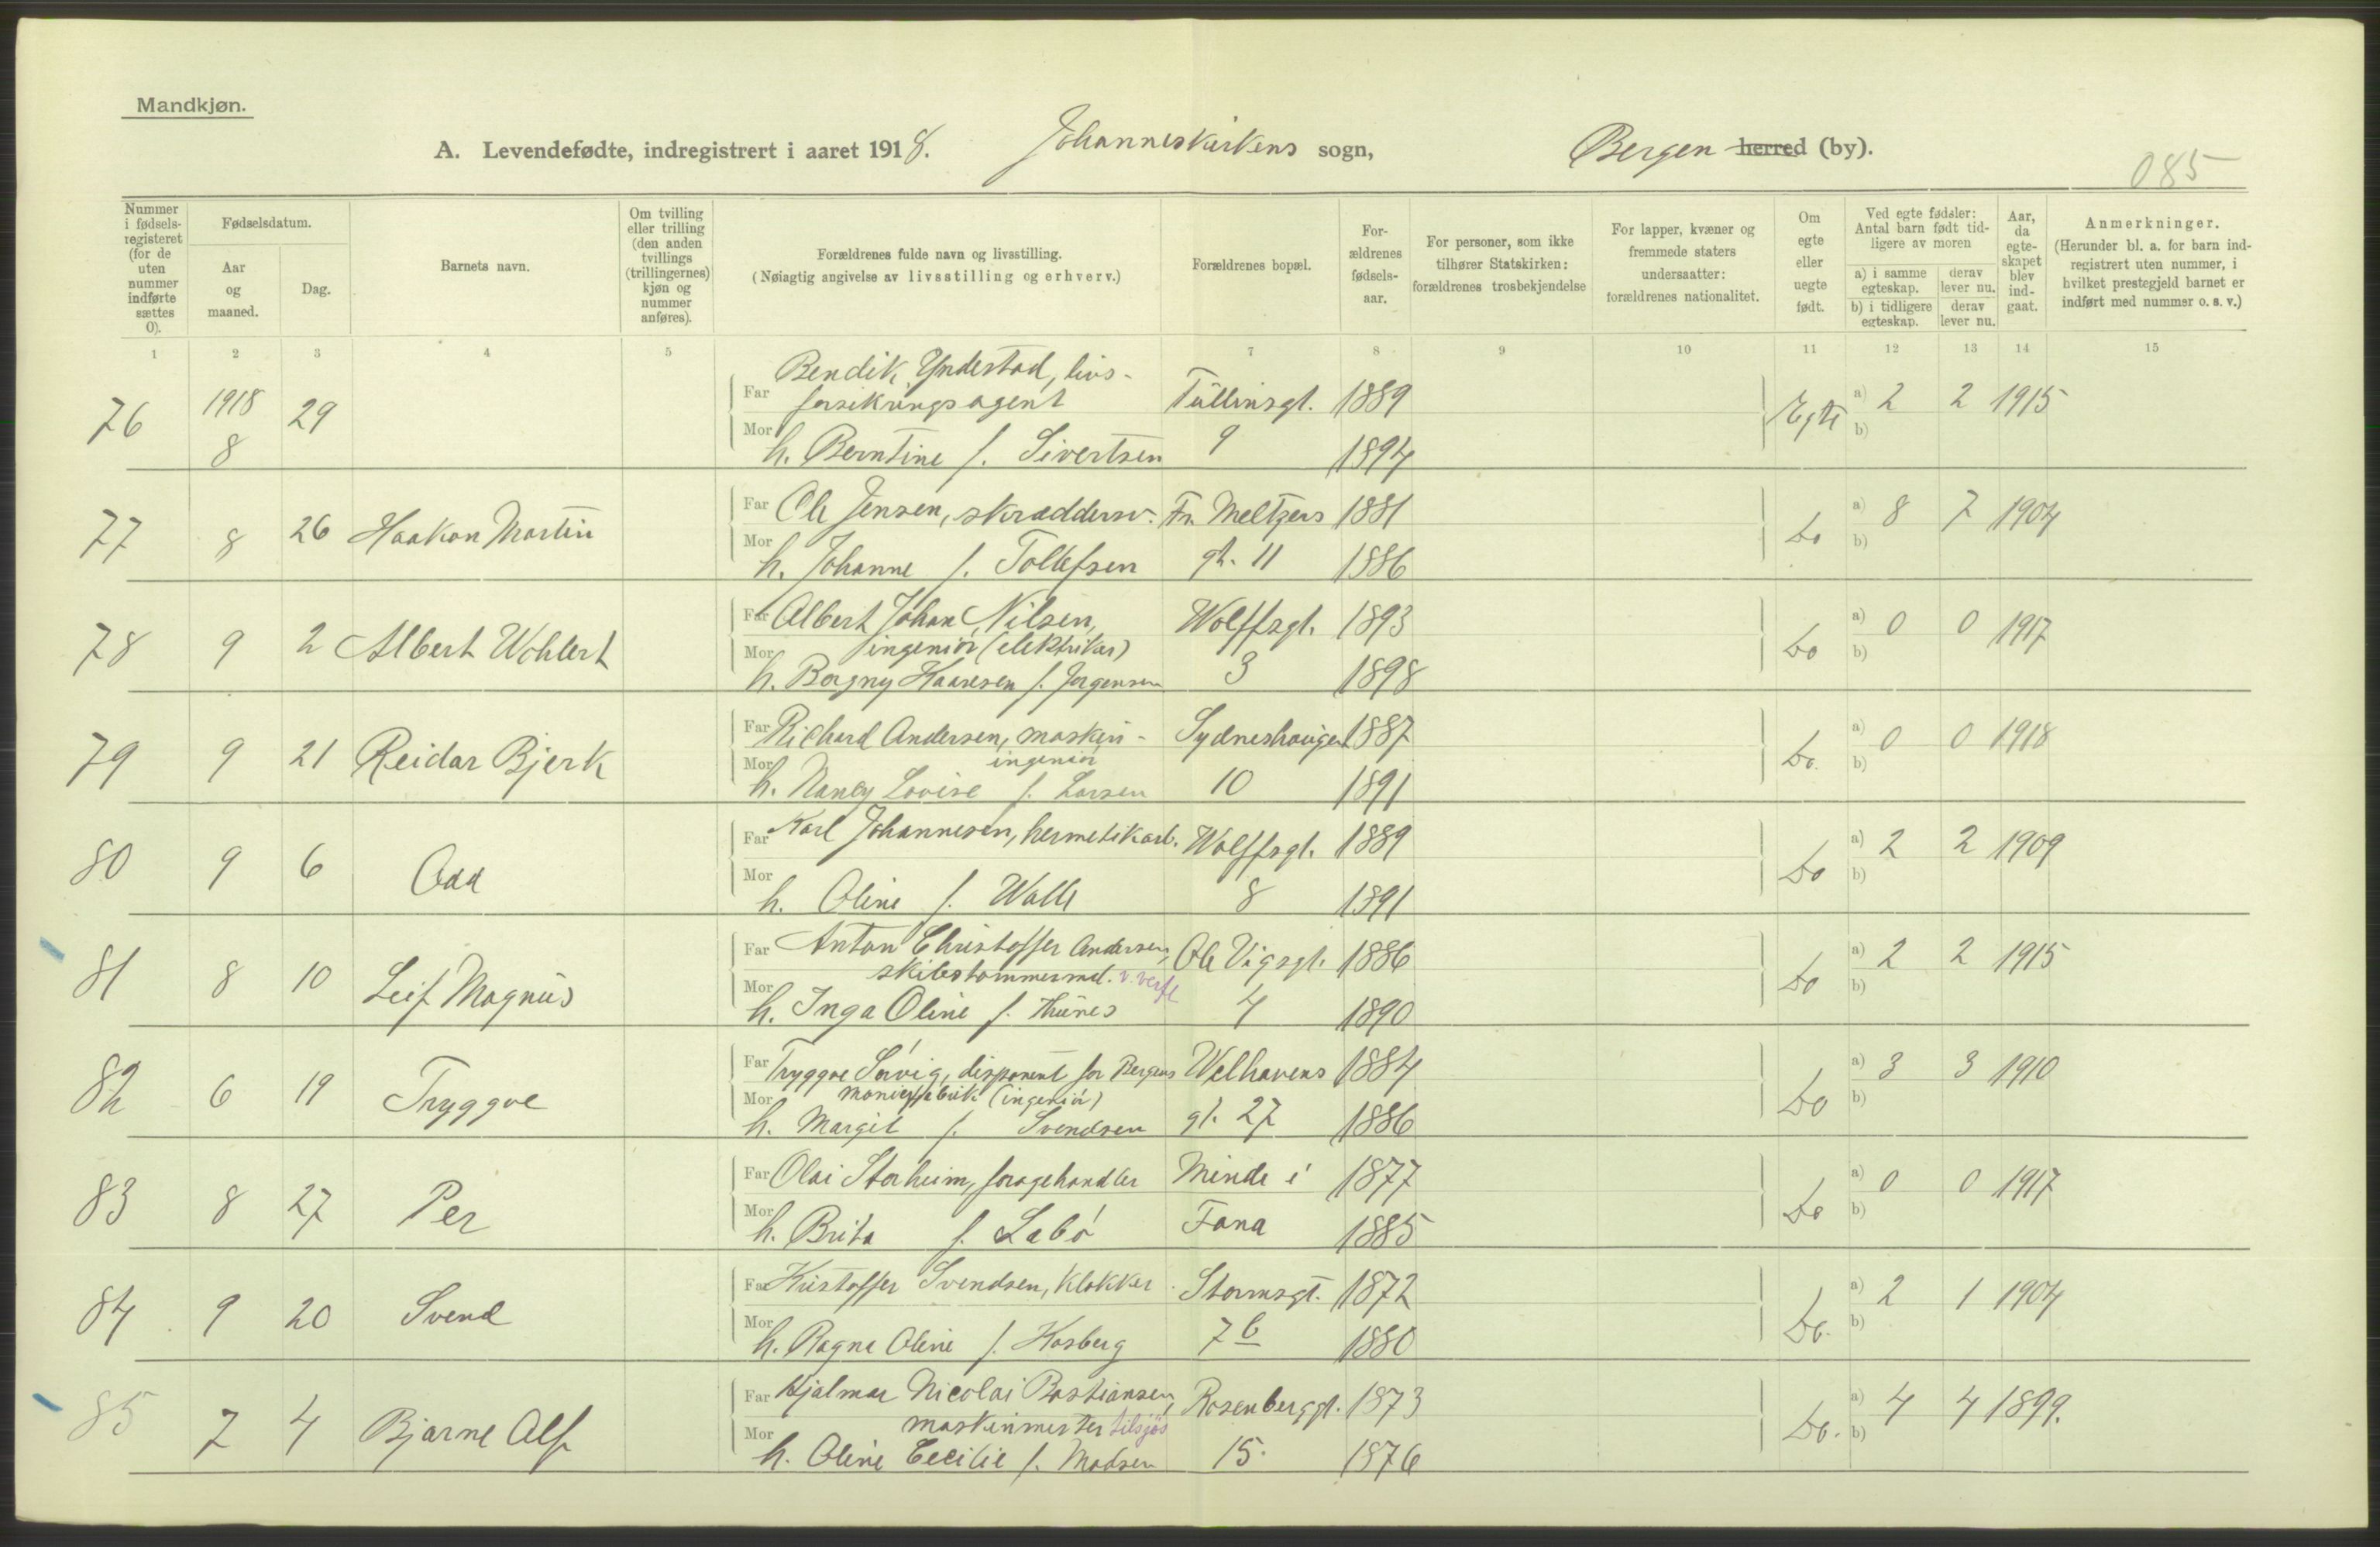 Mandkjøn.
A. Levendefødte, indregistrert i aaret 1918. Johanneskirkens sogn, Bergen herred (by).
085
Nummer i fødselsregisteret (for de uten nummer indførte sættes 0).
Fødselsdatum.
Aar og maaned.
Dag.
Barnets navn.
Om tvilling eller trilling (den anden tvillings (trillingernes) kjøn og nummer anføres).
Forældrenes fulde navn og livsstilling.
(Nøiagtig angivelse av livsstilling og erhverv.)
Forældrenes bopæl.
Forældrenes fødselsaar.
For personer, som ikke tilhører Statskirken: forældrenes trosbekjendelse
For lapper, kvæner og fremmede staters undersaatter: forældrenes nationalitet.
Om egte eller uegte født.
Ved egte fødsler: Antal barn født tidligere av moren
a) i samme egteskap. derav lever nu.
b) i tidligere egteskap. derav lever nu.
Aar, da egteskapet blev indgaat.
Anmerkninger.
(Herunder bl. a. for barn indregistrert uten nummer, i hvilket prestegjeld barnet er indført med nummer o. s. v.)
1 2 3 4 5 7 8 9 10 11 12 13 14 15
76 1918 8 29 Far Bendik Yndestad, livs-
forsikringsagent Tullinsgt. 1889 Egte a) 2 2 1915
Mor h. Berntine f. Sivertsen 9 1894 b)
77 8 26 Haakon Martin Far Ole Jensen, skræddersv. Fr. Meltzers 1881 Do a) 8 7 1904
Mor h. Johanne f. Tollefsen gt. 11 1886 b)
78 9 2 Albert Wohlert Far Albert Johan Nilsen, Wolffsgt. 1893 Do a) 0 0 1917
ingeniør (elektriker)
Mor h. Borgny Haaresen f. Jørgensen 3 1898 b)
79 9 21 Reidar Bjerk Far Richard Andersen, maskin- Sydneshaugen 1887 Do. a) 0 0 1918
ingeniør
Mor h. Nancy Lovise f. Larsen 10 1891 b)
80 9 6 Odd Far Karl Johannesen, hermetikarb. Wolffsgt. 1889 Do a) 2 2 1909
Mor h. Oline f. Walle 8 1891 b)
81 8 10 Leif Magnus Far Anton Christoffer Andersen, Ole Vigsgt. 1886 Do a) 2 2 1915
skibstømmermd. v. verft
Mor h. Inga Oline f. Thunes 4 1890 b)
82 6 19 Tryggve Far Tryggve Sørvig, disponent for Bergens Welhavens 1884 Do a) 3 3 1910
(ingeniør)
Mor h. Margit f. Svendsen gt. 27 1886 b)
83 8 27 Per Far Olai Storheim, foragehandler Minde i 1877 Do a) 0 0 1917
Mor h. Brita f. Løbø Fana 1885 b)
84 9 20 Svend Far Kristoffer Svendsen, klokker Stormsgt. 1872 Do. a) 2 1 1904
Mor h. Ragna Oline f. Hosberg 7 b 1880 b)
85 7 4 Bjarne Alf Far Hjalmar Nicolai Bastiansen, Rosenberggt. 1873 Do. a) 4 4 1899.
maskinmester tilsjøs
Mor h. Oline Cecilie f. Madsen 15. 1876 b)